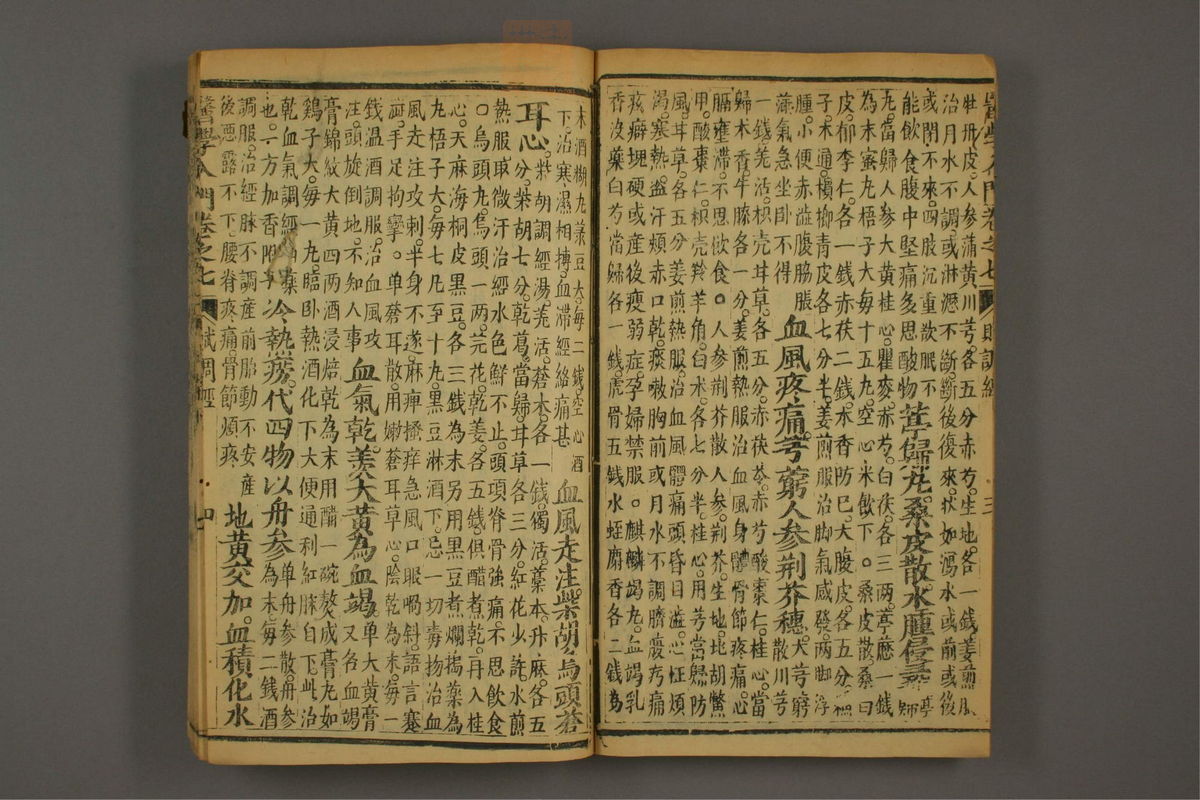 醫學入門卷之七 婦調經 三
牡丹皮人參蒲黃川芎各五分赤芍生地各一錢姜煎服
治月水不調或淋瀝不斷斷後復來狀如瀉水或前或後
或閉不來四肢沉重欲眠不
能飲食腹中堅痛多思酸物
芎歸丸桑皮散水腫侵尋
葶
歸
丸當歸人參大黃桂心瞿麥赤芍白茯各三兩葶藶一錢
為末蜜丸梧子大每十五丸空心米飲下。桑皮散桑白
皮郁李仁各一錢赤茯二錢木香防已大腹皮各五分蘇
子木通檳榔青皮各七分半姜煎服治脚氣感發兩脚浮
腫小便赤澁腹脇脹
滿氣急坐卧不得
血風疼痛芎藭人參荊芥穗
大芎窮
散川芎
一錢羌活枳壳甘草各五分赤茯苓赤芍酸棗仁桂心當
歸木香牛膝各一分姜煎熱服治血風身體骨節疼痛心
膈壅滯不思飲食。人參荊芥散人參荊芥生地北胡鱉
甲酸棗仁枳壳羚羊角白朮各七分半桂心用芎當歸防
風甘草各五分姜煎熱服治血風體痛頭昏目澁心怔煩
渴寒熱盜汗頰赤口乾痰嗽胸前或月水不調臍腹疠痛
痃癖塊硬或産後瘦弱症孕婦禁服。麒麟竭丸血竭乳
香沒藥白芍當歸各一錢虎骨五錢水蛭麝香各二錢為
末酒糊丸菉豆大每二錢空心酒
下治寒濕相摶血滯經絡痛甚
血風走注柴胡烏頭蒼
耳心
柴胡調經湯羌活蒼朮各一錢獨活藁本升麻各五
分柴胡七分乾葛當歸甘草各三分紅花少許水煎
熱服取微汗治經水色鮮不止頭頭脊骨強痛不思飲食
口烏頭丸烏頭一兩芫花乾姜各五錢俱醋煮乾再入桂
心天麻海桐皮黑豆各三錢為末另用黑豆煮爛搗藥為
丸梧子大每七几至十丸黑豆淋酒下忌一切毒物治血
風走注攻刺半身不遂麻痺搔痒急風口眼喎斜語言蹇
澁手足拘攣。單蒼耳散用嫩蒼耳草心陰乾為末每一
錢温酒調服治血風攻
注頭旋倒地不知人事
血氣乾羡大黃為血竭
單大黃膏
又名血竭
膏錦紋大黃四兩酒浸焙乾為末用醋一碗熬成膏丸如
鷄子大每一丸臨卧熱酒化下大便通利紅脉自下此治
乾血氣調經
也。一方加香附
冷熱癆代四物以丹參
單丹參散丹參
為末每二錢酒
調服治經脉不調産前胎動不安産
後惡露不下腰脊疼痛骨節煩疼
地黃交加血積化水
醫學入門卷之七 賦調經 四